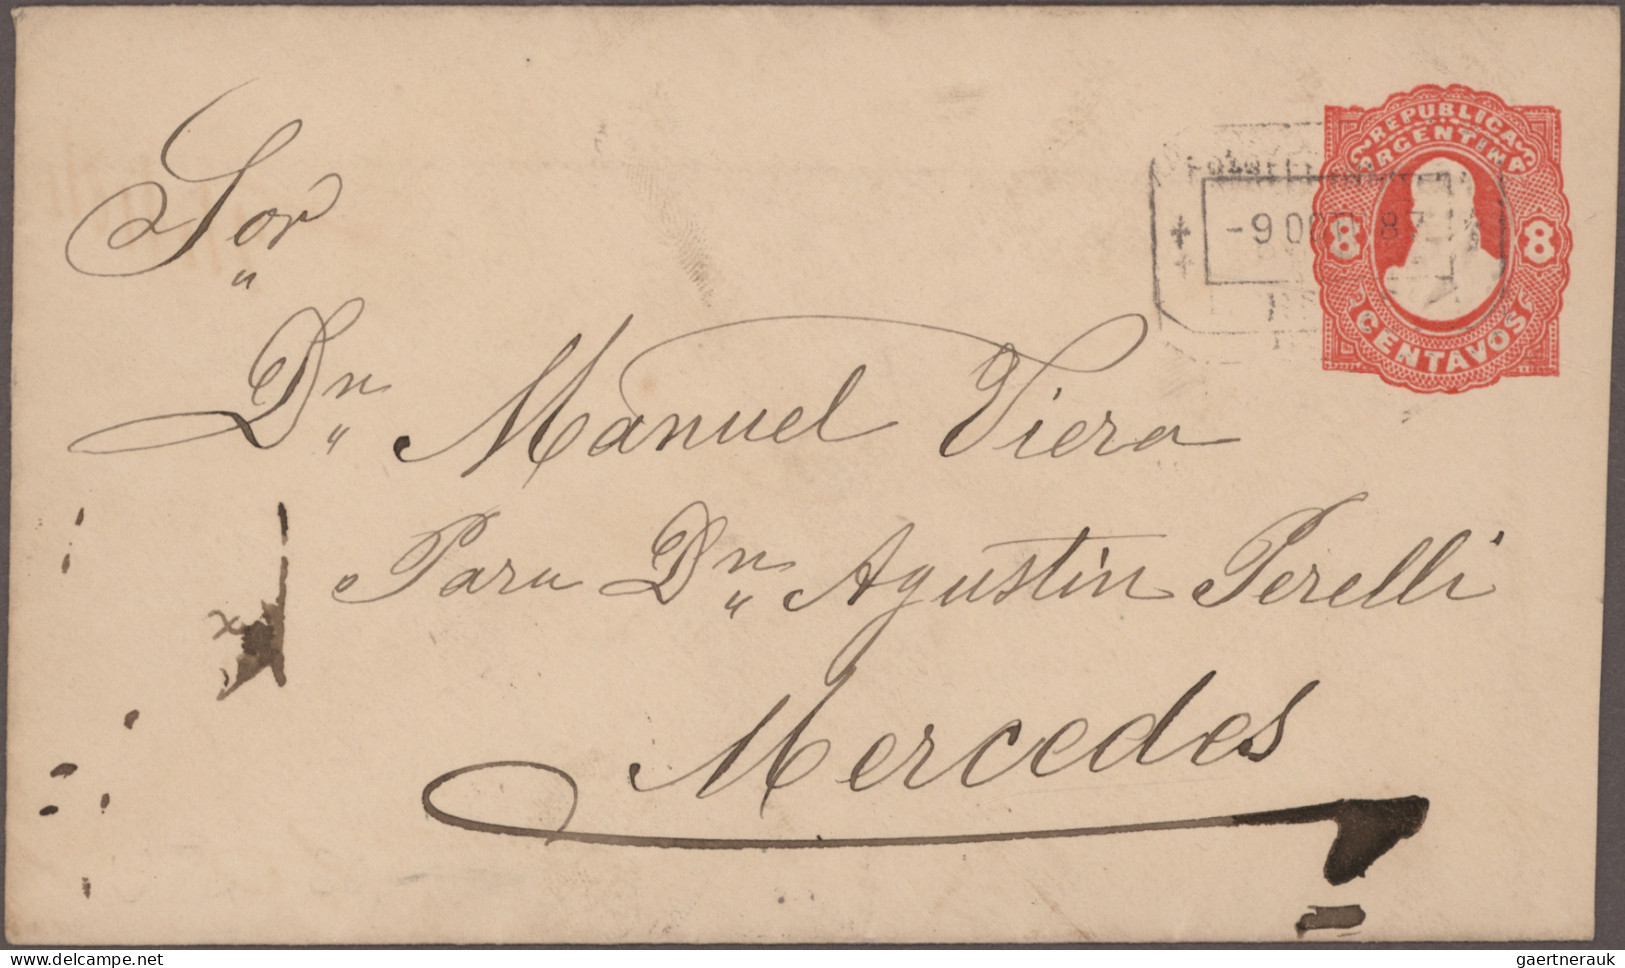 REPUBLICA
ARGENTINA
8 8
CENTAVOS
-9 OCT 87
Sor
Dn Manuel Viera
Para Dn Agustin Perelli
Mercedes
delcampe.net
gaertnerauk